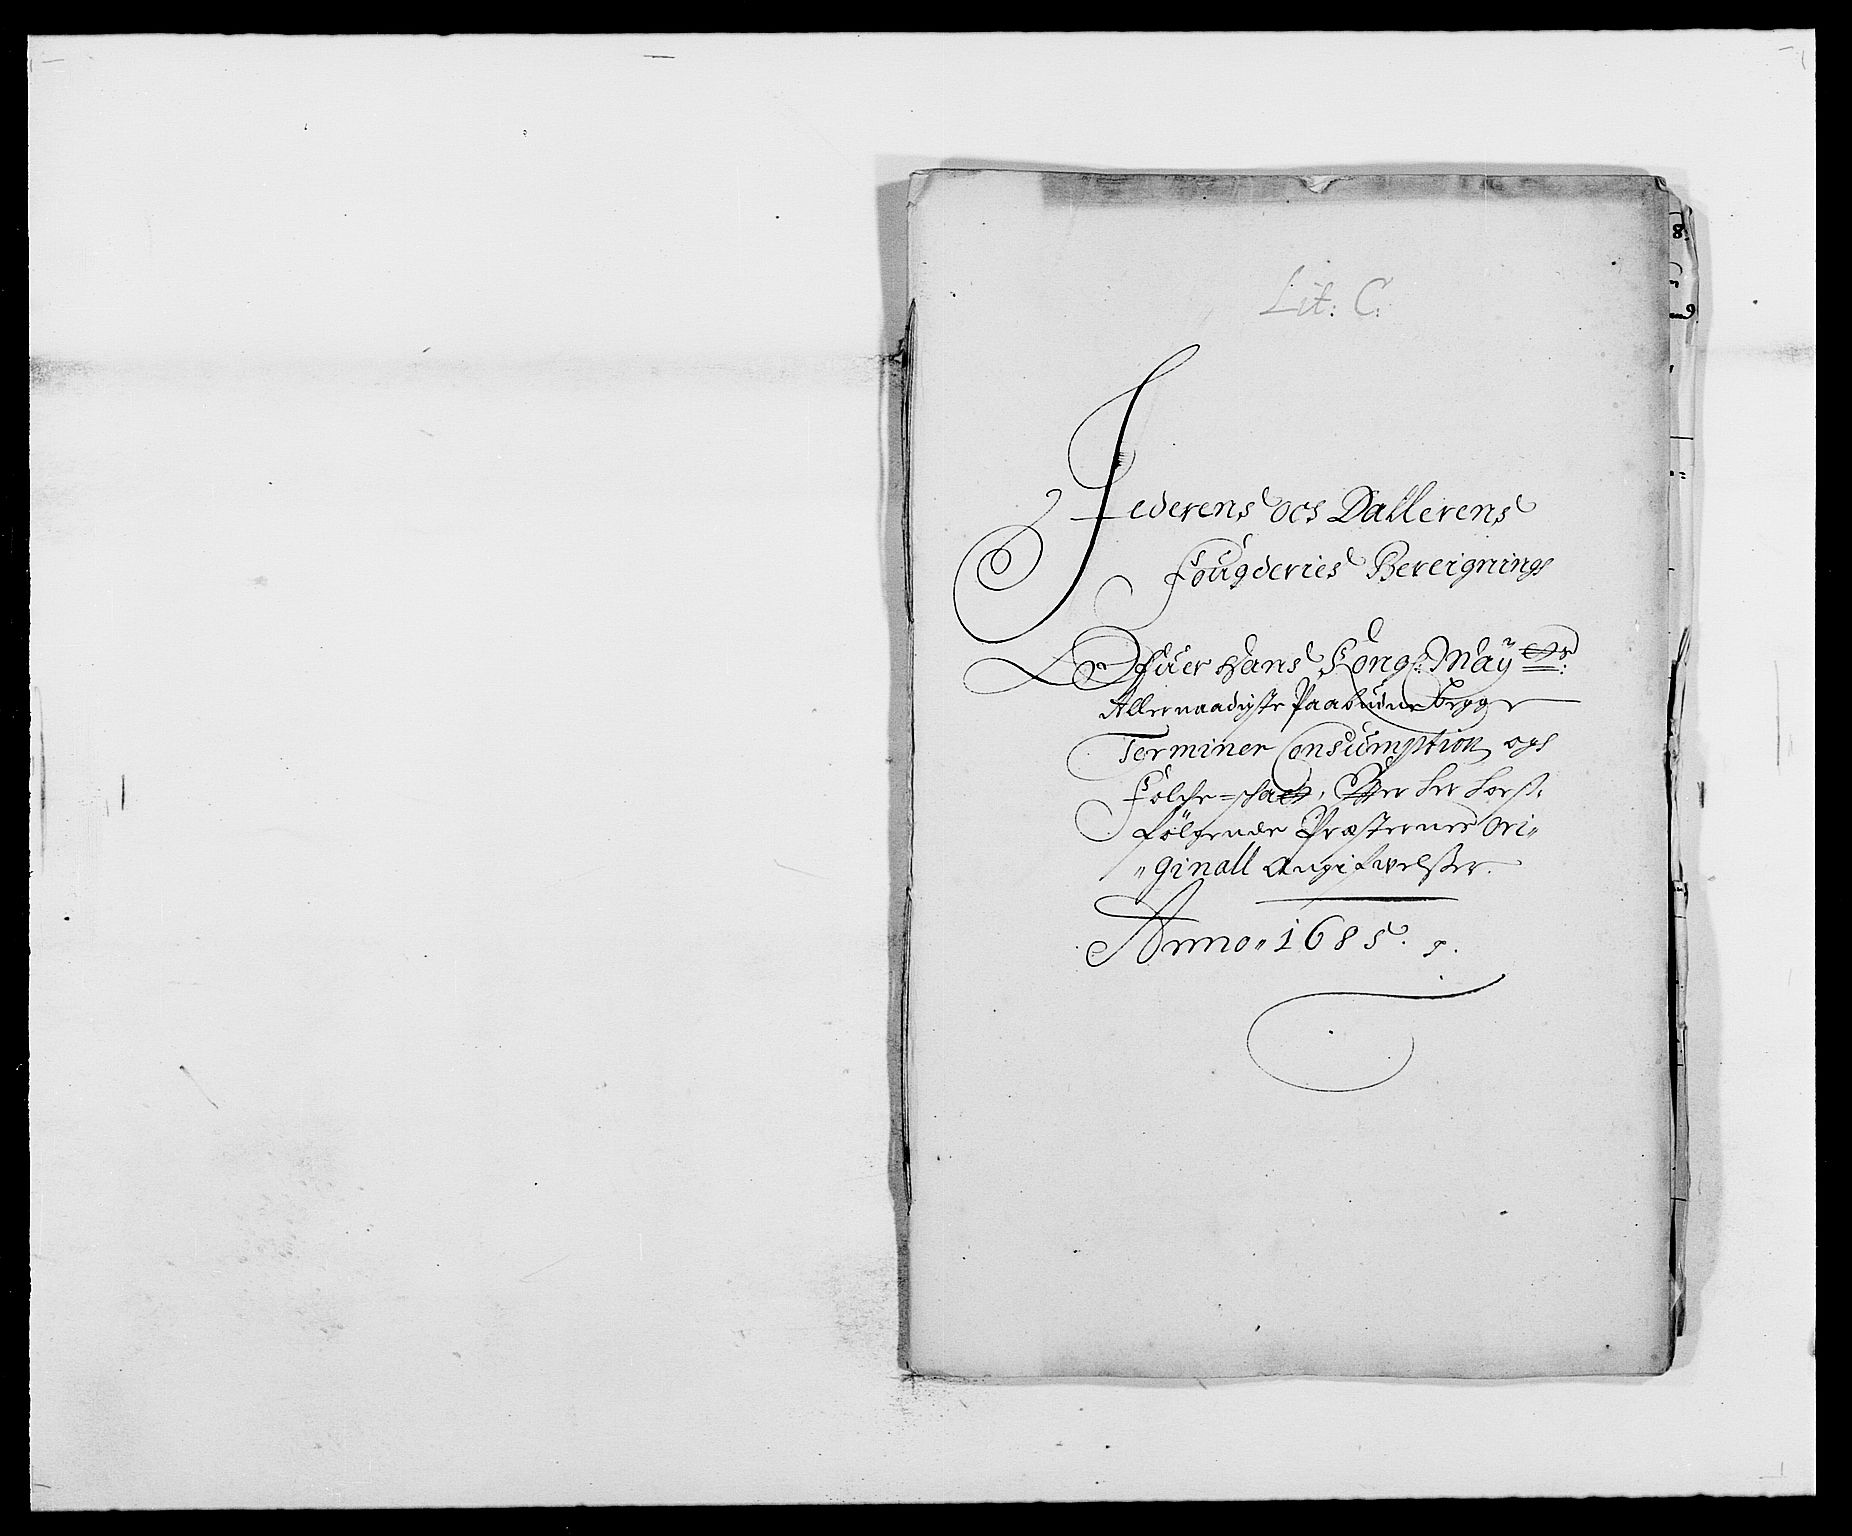 Lit: C:
Jederens ocs Dallerens
Fougderies Bereignings
Ofuer Hans Kong: May ets:
Allernaadigste Paabudne begge
Terminer Consumption ogs
Folche-schatt, Efter her hoes:
følgende Præsternes Ori„
„ginall Angifwelsser.
Anno„ 1685.